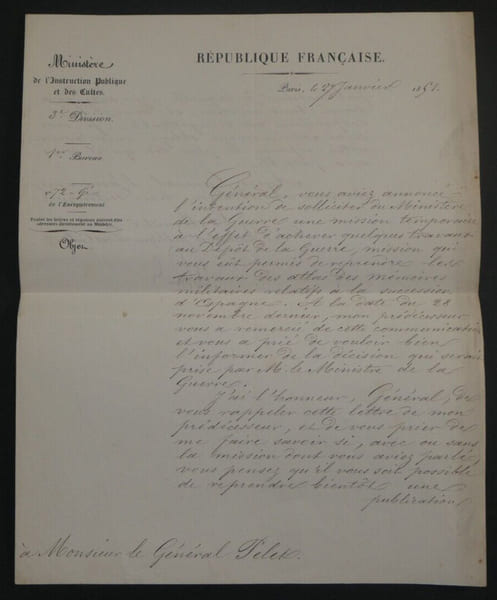 Ministère
de l'Instruction Publique
et des Cultes.
3e Division.
1er Bureau
de l'Enregistrement
Toutes les lettres et réponses doivent être
adressées directement au Ministre.
Objet
RÉPUBLIQUE FRANÇAISE.
Paris, le 27 Janvier 1851.
Général, vous aviez annoncé
l'intention de solliciter du Ministère
de la Guerre une mission temporaire
à l'effet d'achever quelques travaux
au Dépôt de la Guerre, mission qui
vous eut permis de reprendre les
travaux des atlas des mémoires
militaires relatifs à la succession
d'Espagne. A la date du 28
novembre dernier, mon prédécesseur
vous a remercié de cette communication
et vous a prié de vouloir bien
l'informer de la décision qui serait
prise par M. le Ministre de la
Guerre.
J'ai l'honneur, Général, de
vous rappeler cette lettre de mon
prédécesseur, et de vous prier de
me faire savoir si, avec ou sans
la mission dont vous aviez parlé,
vous pensez qu'il vous soit possible
de reprendre bientôt une
publication
à Monsieur le Général Pelet.